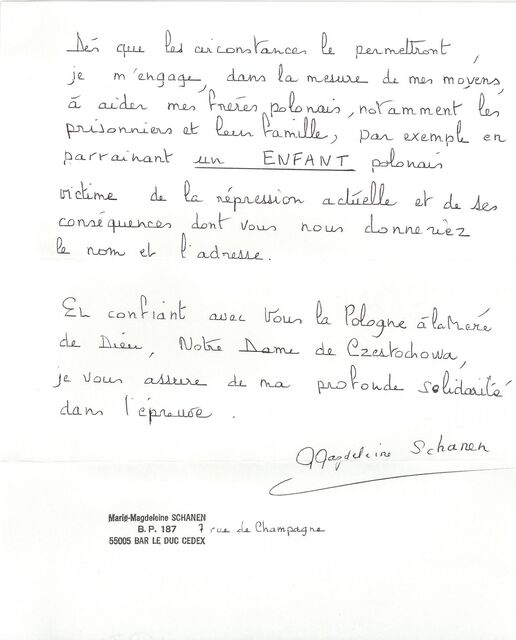 Dès que les circonstances le permettront,
je m'engage, dans la mesure de mes moyens,
à aider mes frères polonais, notamment les
prisonniers et leur famille, par exemple en
parrainant un ENFANT polonais
victime de la répression actuelle et de ses
conséquences dont vous nous donneriez
le nom et l'adresse.
En confiant avec Vous la Pologne à la Mère
de Dieu, Notre Dame de Czestochowa,
je vous assure de ma profonde solidarité
dans l'épreuve.
Magdeleine Schanen
Marie-Magdeleine SCHANEN
B.P. 187 7 rue de Champagne
55005 BAR LE DUC CEDEX